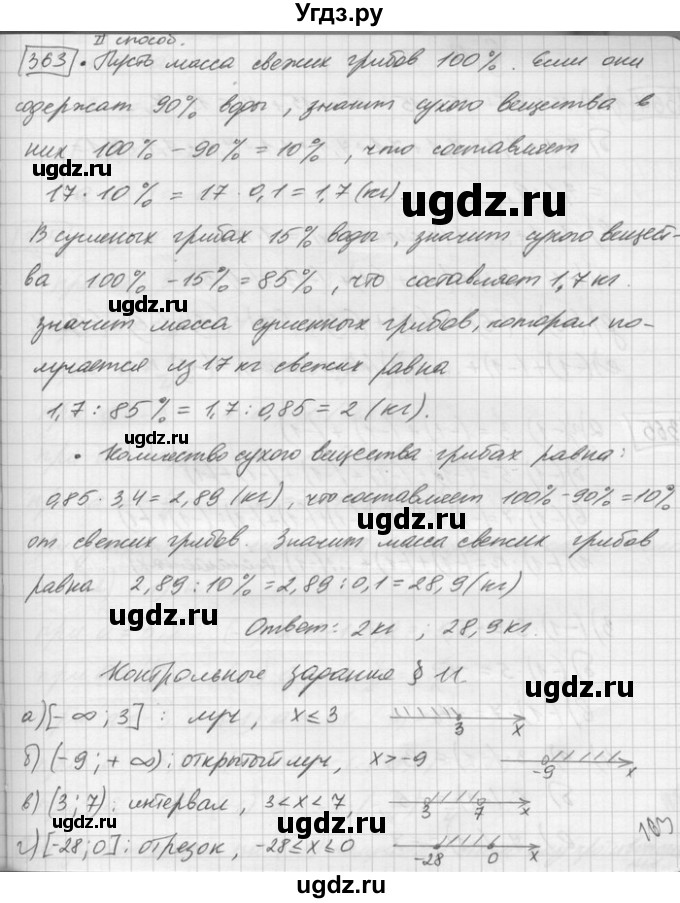 Угдз.ру
II способ.
363 • Пусть масса свежих грибов 100%. Если они
содержат 90% воды, значит сухого вещества в
них 100% - 90% = 10%, что составляет
ugdz.ru
ugdz.ru
17 · 10% = 17 · 0,1 = 1,7 (кг)
ugdz.ru
В сушеных грибах 15% воды, значит сухого вещест-
ва 100% - 15% = 85%, что составляет 1,7 кг.
ugdz.ru
ugdz.ru
значит масса сушенных грибов, которая по-
лучается из 17 кг свежих равна
1,7 : 85% = 1,7 : 0,85 = 2 (кг).
ugdz.ru
• Количество сухого вещества грибах равна:
0,85 · 3,4 = 2,89 (кг), что составляет 100% - 90% = 10%
ugdz.ru
от свежих грибов. Значит масса свежих грибов
равна 2,89 : 10% = 2,89 : 0,1 = 28,9 (кг)
ugdz.ru
Ответ: 2 кг ; 28,9 кг.
Контрольные задания § 11
ugdz.ru
а) [-∞; 3] : луч, x ≤ 3 3 x
ugdz.ru
б) (-9; +∞) : открытый луч, x > -9 -9 x
в) (3; 7) : интервал, 3 < x < 7, 3 7 x
ugdz.ru
г) [-28; 0] : отрезок, -28 ≤ x ≤ 0 -28 0 x
103
ugdz.ru
ugdz.ru